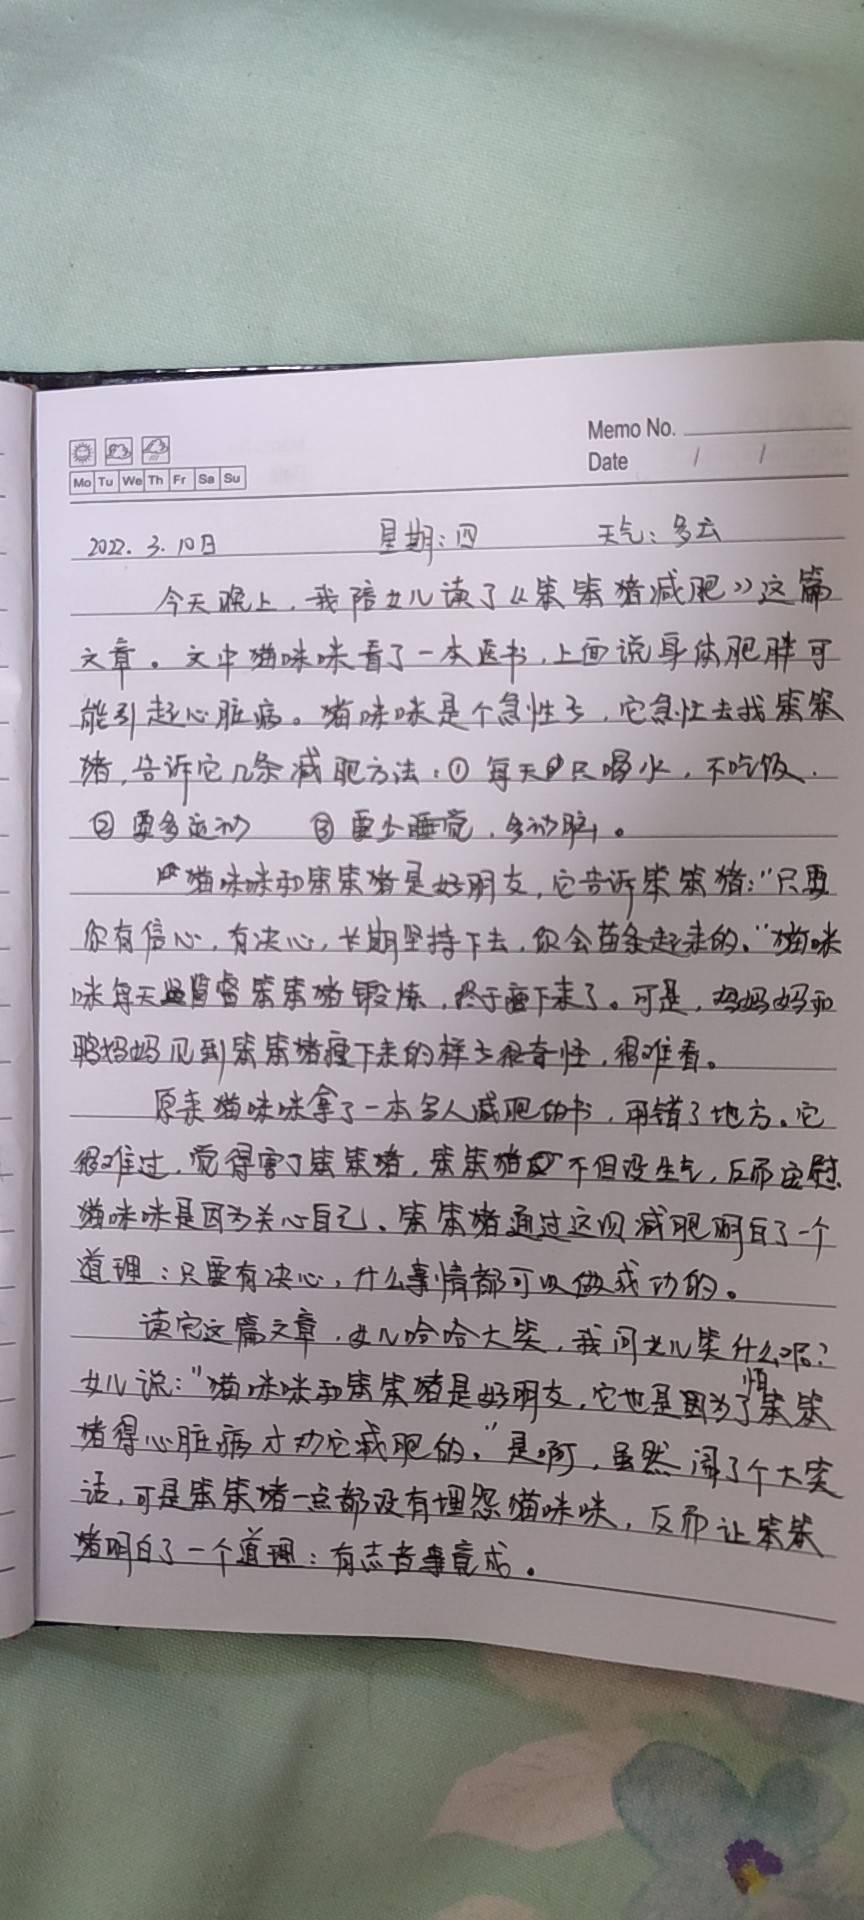 Memo No.
Date / /
Mo Tu We Th Fr Sa Su
2022. 3. 10日 星期:四 天气:多云
今天晚上,我陪女儿读了《笨笨猪减肥》这篇
文章。文中猫咪咪看了一本医书,上面说身体肥胖可
能引起心脏病。猫咪咪是个急性子,它急忙去找笨笨
猪,告诉它几条减肥方法:①每天只喝水,不吃饭.
②要多运动 ③要少睡觉,多动脑。
猫咪咪和笨笨猪是好朋友,它告诉笨笨猪:"只要
你有信心,有决心,长期坚持下去,你会苗条起来的."猫咪
咪每天监督笨笨猪锻炼,终于瘦下来了。可是,妈妈和
妈妈见到笨笨猪瘦下来的样子很奇怪,很难看。
原来猫咪咪拿了一本多人减肥的书,用错了地方。它
很难过,觉得害了笨笨猪,笨笨猪不但没生气,反而安慰
猫咪咪是因为关心自己。笨笨猪通过这次减肥明白了一个
道理:只要有决心,什么事情都可以做成功的。
读完这篇文章,女儿哈哈大笑,我问女儿笑什么呢?
女儿说:"猫咪咪和笨笨猪是好朋友,它也是因为了怕笨笨
猪得心脏病才劝它减肥的."是啊,虽然闹了个大笑
话,可是笨笨猪一点都没有埋怨猫咪咪,反而让笨笨
猪明白了一个道理:有志者事竟成。